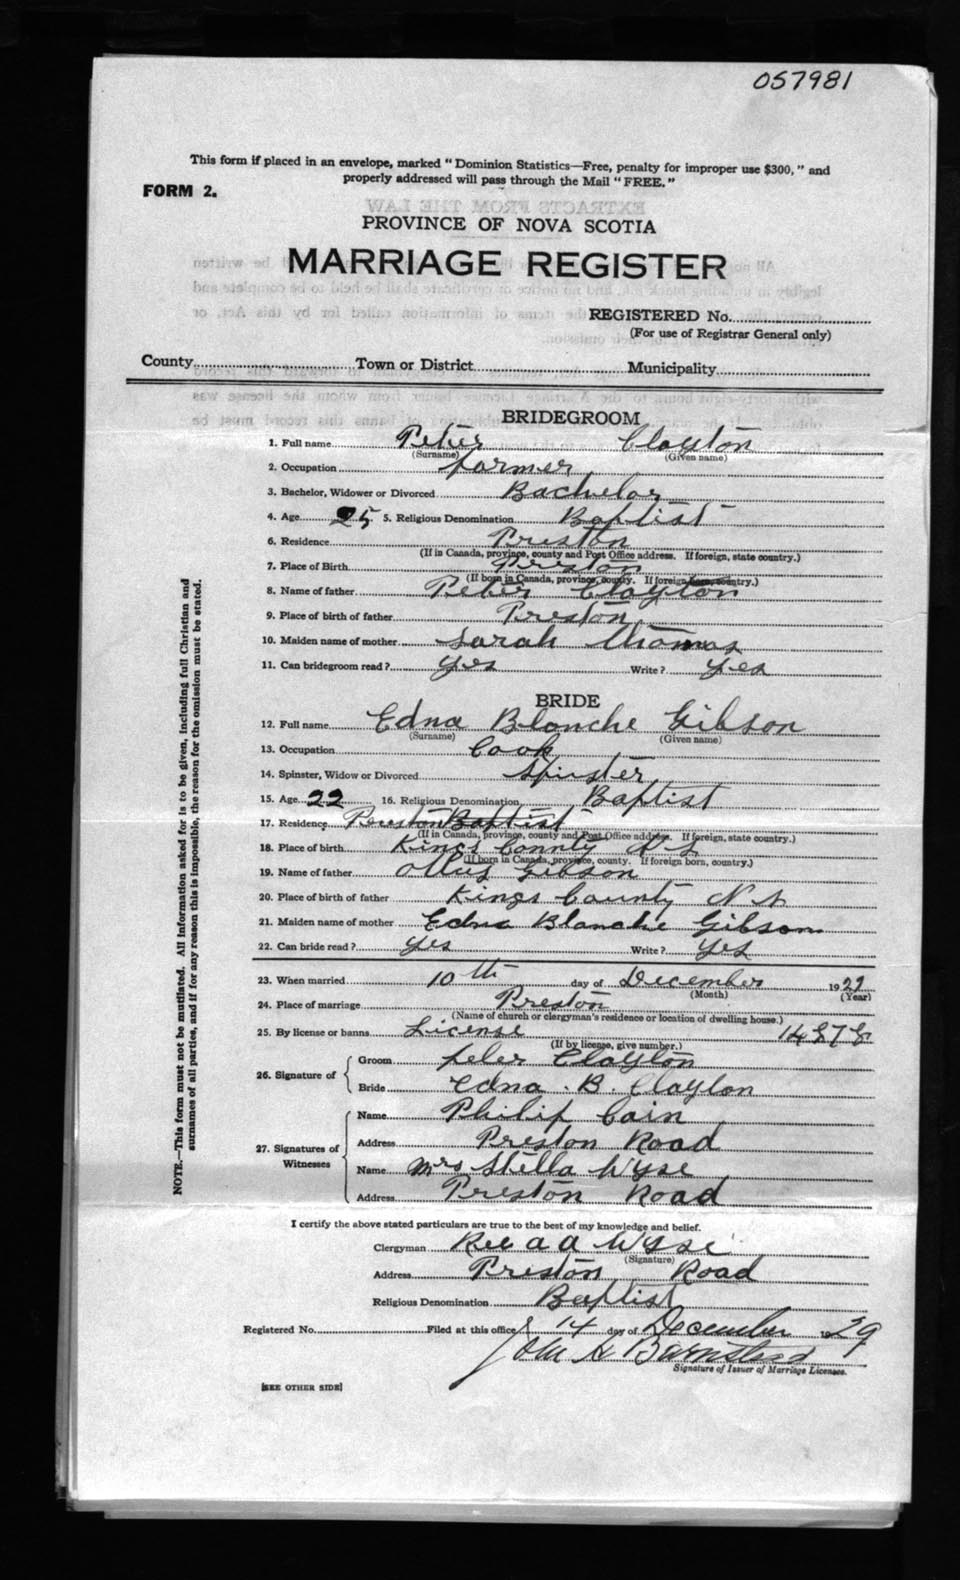 057981
This form if placed in an envelope, marked "Dominion Statistics—Free, penalty for improper use $300," and
properly addressed will pass through the Mail "FREE."
FORM 2.
PROVINCE OF NOVA SCOTIA
MARRIAGE REGISTER
REGISTERED No.
(For use of Registrar General only)
County Town or District Municipality
BRIDEGROOM
1. Full name Peter Clayton
(Surname) (Given name)
2. Occupation Farmer
3. Bachelor, Widower or Divorced Bachelor
4. Age 25 5. Religious Denomination Baptist
6. Residence Preston
(If in Canada, province, county and Post Office address. If foreign, state country.)
7. Place of Birth Preston
(If born in Canada, province, county. If foreign born, country.)
8. Name of father Peter Clayton
9. Place of birth of father Preston
10. Maiden name of mother Sarah Thomas
11. Can bridegroom read? yes Write? yes
BRIDE
12. Full name Edna Blanche Gibson
(Surname) (Given name)
13. Occupation Cook
14. Spinster, Widow or Divorced Spinster
15. Age 22 16. Religious Denomination Baptist
17. Residence Preston Baptist
(If in Canada, province, county and Post Office address. If foreign, state country.)
18. Place of birth Kings County N S
(If born in Canada, province, county. If foreign born, country.)
19. Name of father Gibson
20. Place of birth of father Kings County N S
21. Maiden name of mother Edna Blanche Gibson
22. Can bride read? yes Write? yes
23. When married 10th day of December 1929
(Month) (Year)
24. Place of marriage Preston
(Name of church or clergyman's residence or location of dwelling house.)
25. By license or banns License
(If by license, give number.)
26. Signature of Groom Peter Clayton
Bride Edna . B . Clayton
27. Signatures of Witnesses
Name Philip Cain
Address Preston Road
Name Mrs Stella Wyse
Address Preston Road
I certify the above stated particulars are true to the best of my knowledge and belief.
Clergyman Rev A A Wyse
(Signature)
Address Preston Road
Religious Denomination Baptist
Registered No. Filed at this office 14 day of December 1929
John A Barnstead
Signature of Issuer of Marriage Licenses.
[SEE OTHER SIDE]
NOTE.—This form must not be mutilated. All information asked for is to be given, including full Christian and
surnames of all parties, and if for any reason this is impossible, the reason for the omission must be stated.